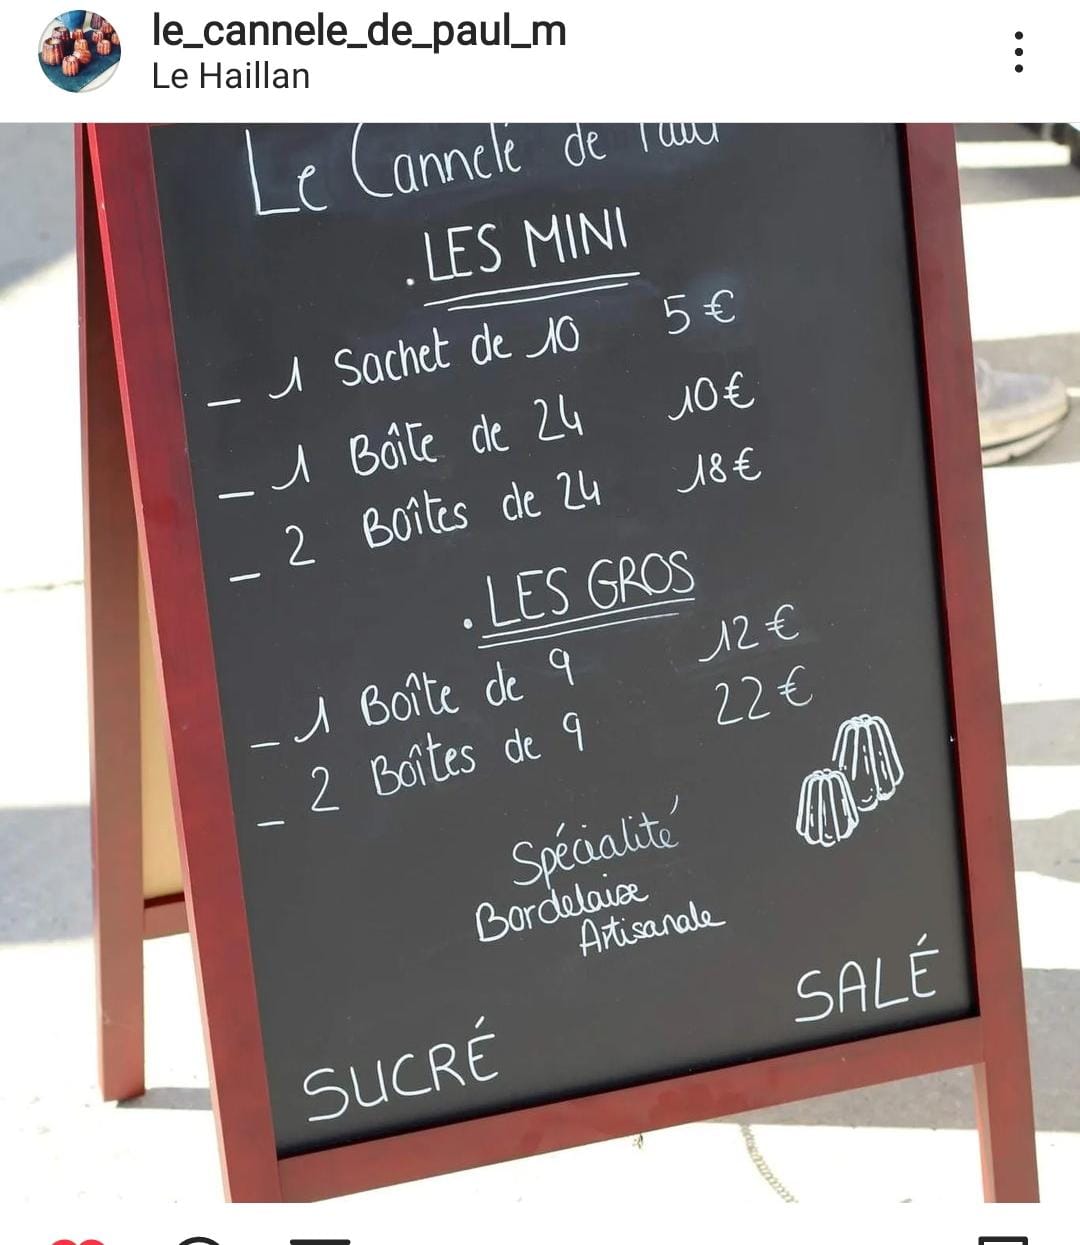 le_cannele_de_paul_m
Le Haillan
Le Cannelé de Paul
. LES MINI
_ 1 Sachet de 10 5 €
_ 1 Boîte de 24 10 €
_ 2 Boîtes de 24 18 €
. LES GROS
_ 1 Boîte de 9 12 €
_ 2 Boîtes de 9 22 €
Spécialité
Bordelaise
Artisanale
SALÉ
SUCRÉ